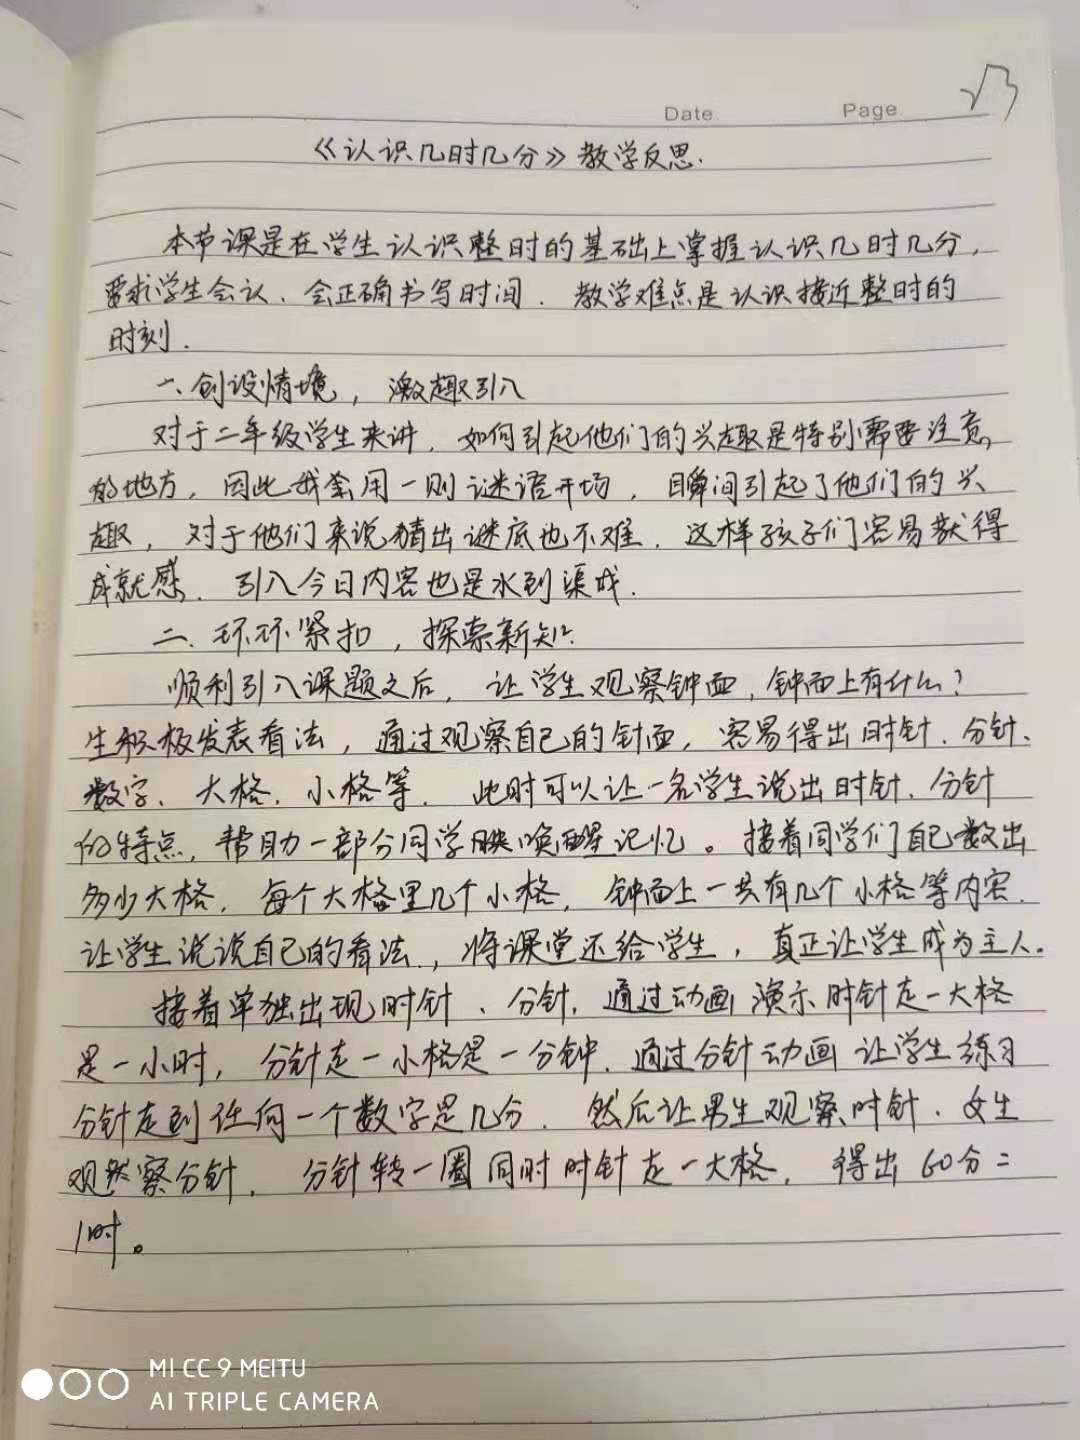 Date
Page
√3
《认识几时几分》教学反思.
本节课是在学生认识整时的基础上掌握认识几时几分,
要求学生会认、会正确书写时间. 教学难点是认识接近整时的
时刻.
一、创设情境,激趣引入
对于二年级学生来讲,如何引起他们的兴趣是特别需要注意
的地方,因此我会用一则谜语开场,瞬间引起了他们的兴
趣,对于他们来说猜出谜底也不难. 这样孩子们容易获得
成就感. 引入今日内容也是水到渠成.
二、环环紧扣,探索新知.
顺利引入课题之后,让学生观察钟面,钟面上有什么?
生积极发表看法,通过观察自己的钟面,容易得出时针、分针、
数字、大格、小格等. 此时可以让一名学生说出时针、分针
的特点,帮助一部分同学唤醒记忆。接着同学们自己数出
多少大格,每个大格里几个小格,钟面上一共有几个小格等内容.
让学生说说自己的看法.,将课堂还给学生,真正让学生成为主人.
接着单独出现时针、分针,通过动画演示时针走一大格
是一小时,分针走一小格是一分钟. 通过分针动画让学生练习
分针走到任何一个数字是几分. 然后让男生观察时针、女生
观察分针,分针转一圈同时时针走一大格,得出60分=
1时。
MI CC 9 MEITU
AI TRIPLE CAMERA